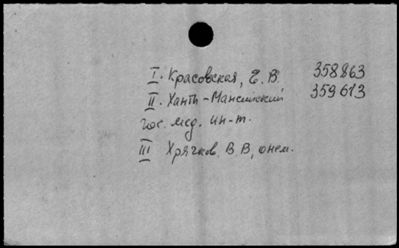 I. Красовская, Е. В 358863
II. Ханты-Мансийский 359613
гос. мед. ин-т.
III Хрячков, В В, онем.